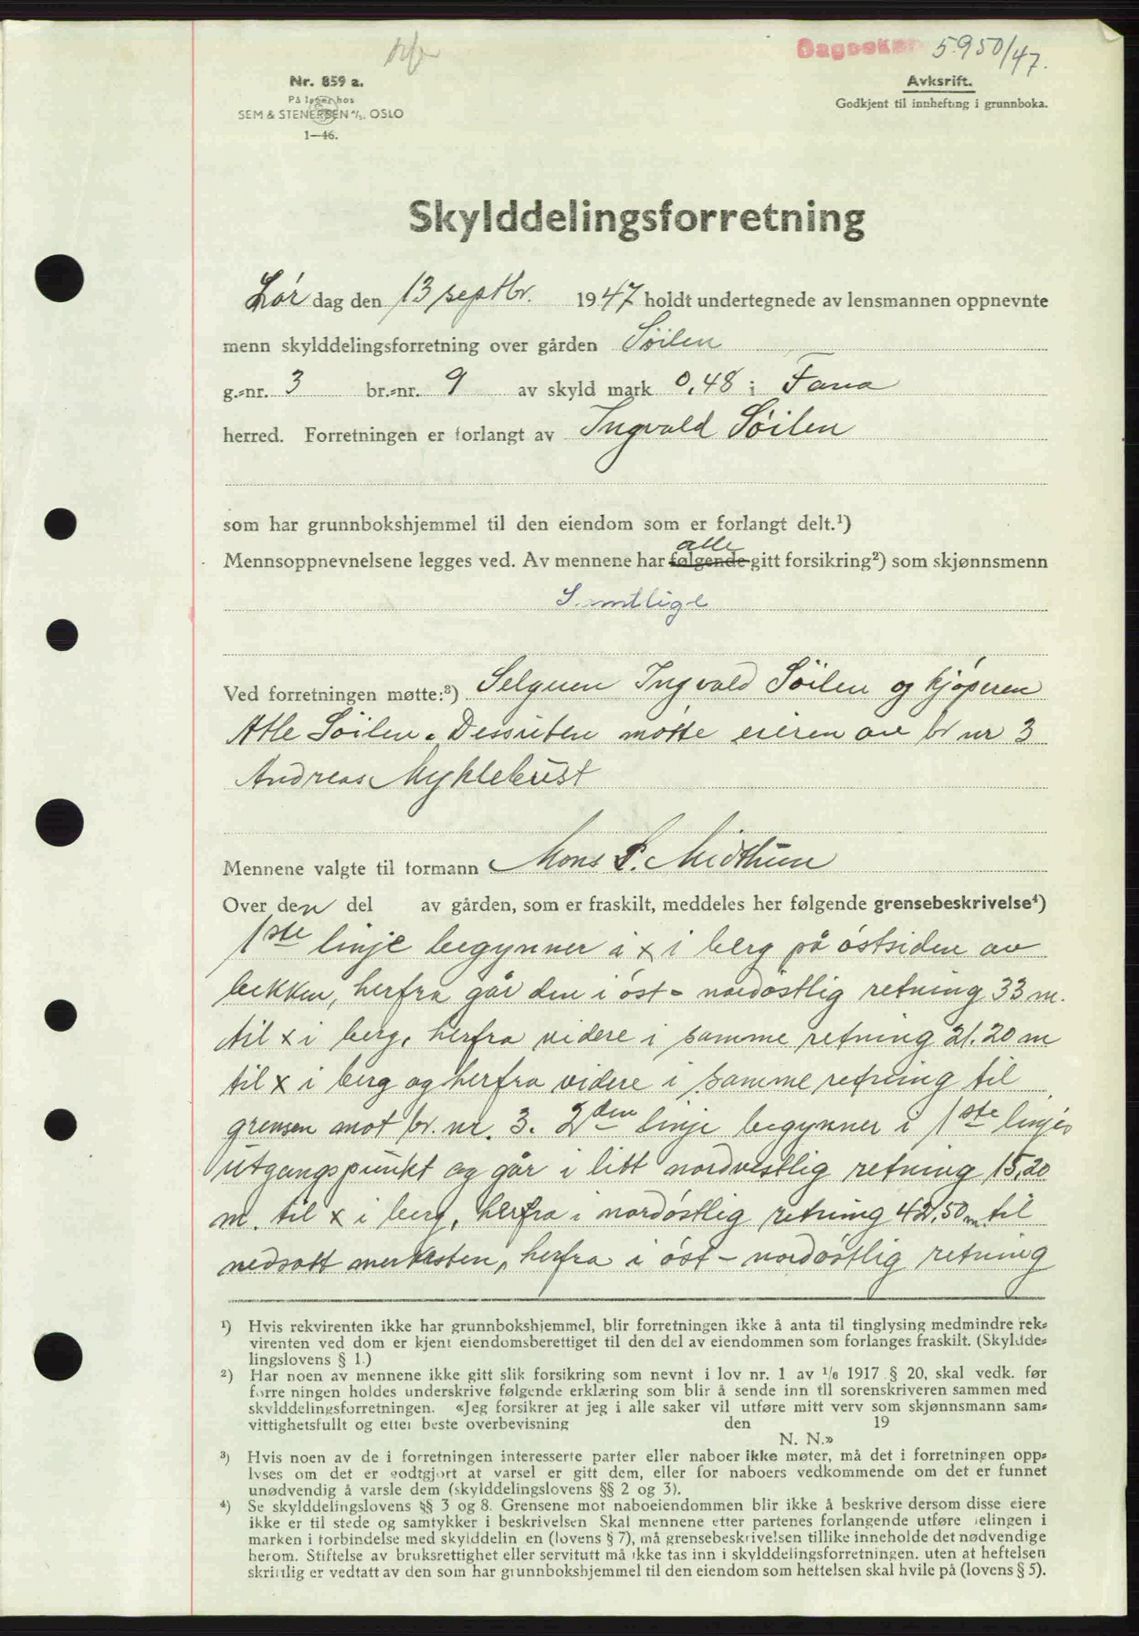 Dagbok 5950/47.
Nr. 859 a.
På lager hos
SEM & STENERSEN A/S. OSLO
1—46.
Avksrift.
Godkjent til innhefting i grunnboka.
Skylddelingsforretning
Lørdag den 13 septbr. 1947 holdt undertegnede av lensmannen oppnevnte
menn skylddelingsforretning over gården Söilen
g.-nr. 3 br.-nr. 9 av skyld mark 0,48 i Fana
herred. Forretningen er forlangt av Ingvald Söilen
som har grunnbokshjemmel til den eiendom som er forlangt delt.¹)
alle
Mennsoppnevnelsene legges ved. Av mennene har følgende gitt forsikring²) som skjønnsmenn
Samtlige
Ved forretningen møtte:³) Selgeren Ingvald Söilen og kjøperen
Atle Söilen. Dessuten møtte eieren av br nr 3
Andreas Myklebust
Mennene valgte til formann Mons S. Midthun
Over den del av gården, som er fraskilt, meddeles her følgende grensebeskrivelse⁴)
1ste linje begynner i x i berg på østsiden av
bekken, herfra går den i øst - nordøstlig retning 33 m.
til x i berg, herfra videre i samme retning 21.20 m
til x i berg og herfra videre i samme retning til
grensen mot br. nr. 3. 2den linje begynner i 1ste linjes
utgangspunkt og går i litt nordvestlig retning 15,20
m. til x i berg, herfra i nordøstlig retning 42,50 m. til
nedsatt merkesten, herfra i øst - nordøstlig retning
¹) Hvis rekvirenten ikke har grunnbokshjemmel, blir forretningen ikke å anta til tinglysing medmindre rek-
virenten ved dom er kjent eiendomsberettiget til den del av eiendommen som forlanges fraskilt. (Skyldde-
lingslovens § 1.)
²) Har noen av mennene ikke gitt slik forsikring som nevnt i lov nr. 1 av 1/6 1917 § 20, skal vedk. før
forretningen holdes underskrive følgende erklæring som blir å sende inn til sorenskriveren sammen med
skylddelingsforretningen. «Jeg forsikrer at jeg i alle saker vil utføre mitt verv som skjønnsmann sam-
vittighetsfullt og etter beste overbevisning den 19
N. N.»
³) Hvis noen av de i forretningen interesserte parter eller naboer ikke møter, må det i forretningen opp-
lyses om det er godtgjort at varsel er gitt dem, eller for naboers vedkommende om det er funnet
unødvendig å varsle dem (skylddelingslovens §§ 2 og 3).
⁴) Se skylddelingslovens §§ 3 og 8. Grensene mot naboeiendommen blir ikke å beskrive dersom disse eiere
ikke er til stede og samtykker i beskrivelsen Skal mennene etter partenes forlangende utføre delingen i
marken i forbindelse med skylddelingen (lovens § 7), må grensebeskrivelsen tillike inneholde det nødvendige
herom. Stiftelse av bruksrettighet eller servitutt må ikke tas inn i skylddelingsforretningen. uten at heftelsen
skriftlig er vedtatt av den som har grunnbokshjemmel til den eiendom som heftelsen skal hvile på (lovens § 5).